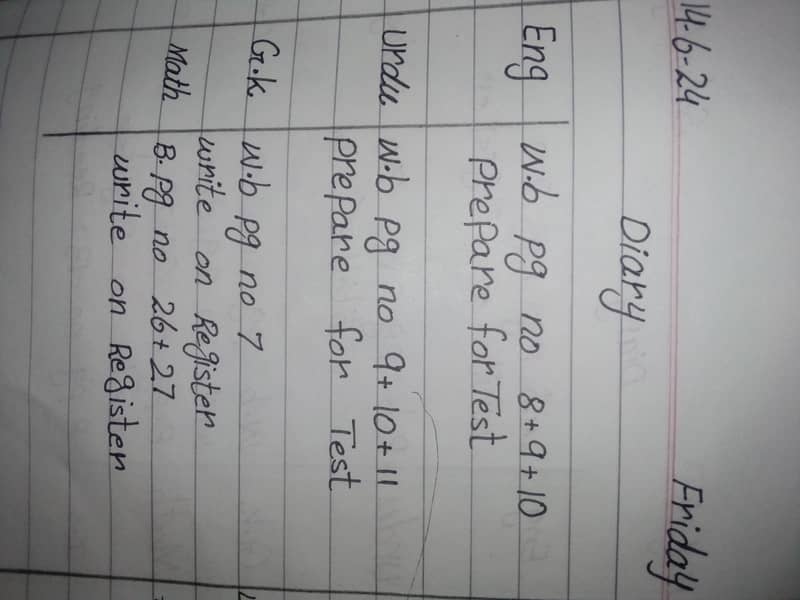 14-6-24 Friday
Diary
Eng W.b pg no 8+9+10
Prepare for Test
Urdu W.b pg no 9+10+11
Prepare for Test
G.k. W.b pg no 7
write on Register
Math B.pg no 26+27
write on Register